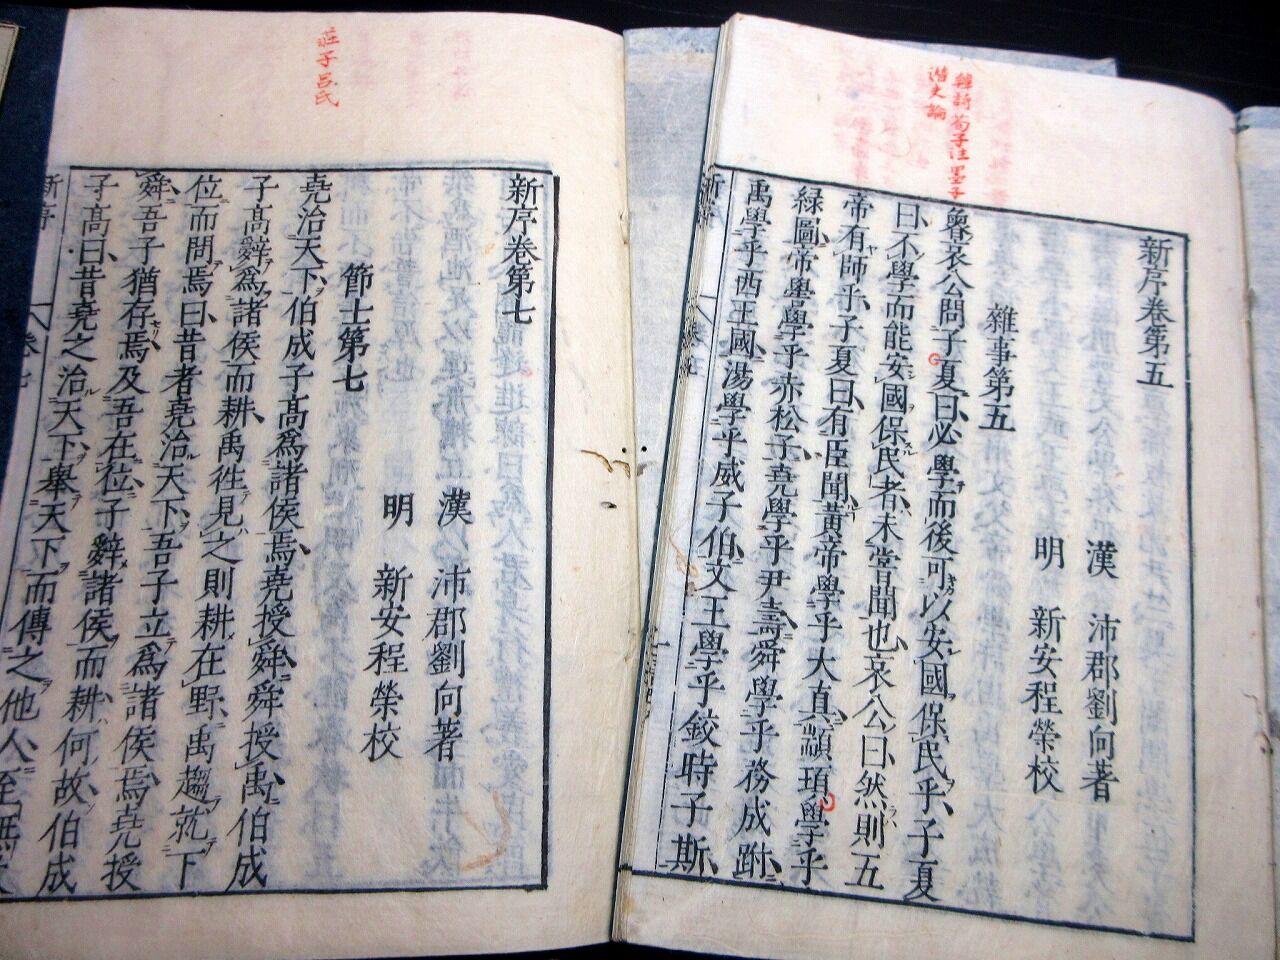 雜 荀子注墨子
潜夫論
新序卷第五
漢 沛郡劉向著
明 新安程榮校
雜事第五
魯哀公問子夏曰必學而後可以安國保民乎子夏
曰不學而能安國保民者未嘗聞也哀公曰然則五
帝有師乎子夏曰有臣聞黃帝學乎大真顓頊學乎
綠圖帝嚳學乎赤松子堯學乎尹壽舜學乎務成跗
禹學乎西王國湯學乎威子伯文王學乎鉸時子斯
新序
莊子呂氏
新序卷第七
漢 沛郡劉向著
明 新安程榮校
節士第七
堯治天下伯成子高爲諸侯焉堯授舜舜授禹伯成
子高辭爲諸侯而耕禹徃見之則耕在野禹趨就下
位而問焉曰昔者堯治天下吾子立爲諸侯焉堯授
舜吾子猶存焉及吾在位子辭諸侯而耕何故伯成
子高曰昔堯之治天下舉天下而傳之他人至無
新序 卷七